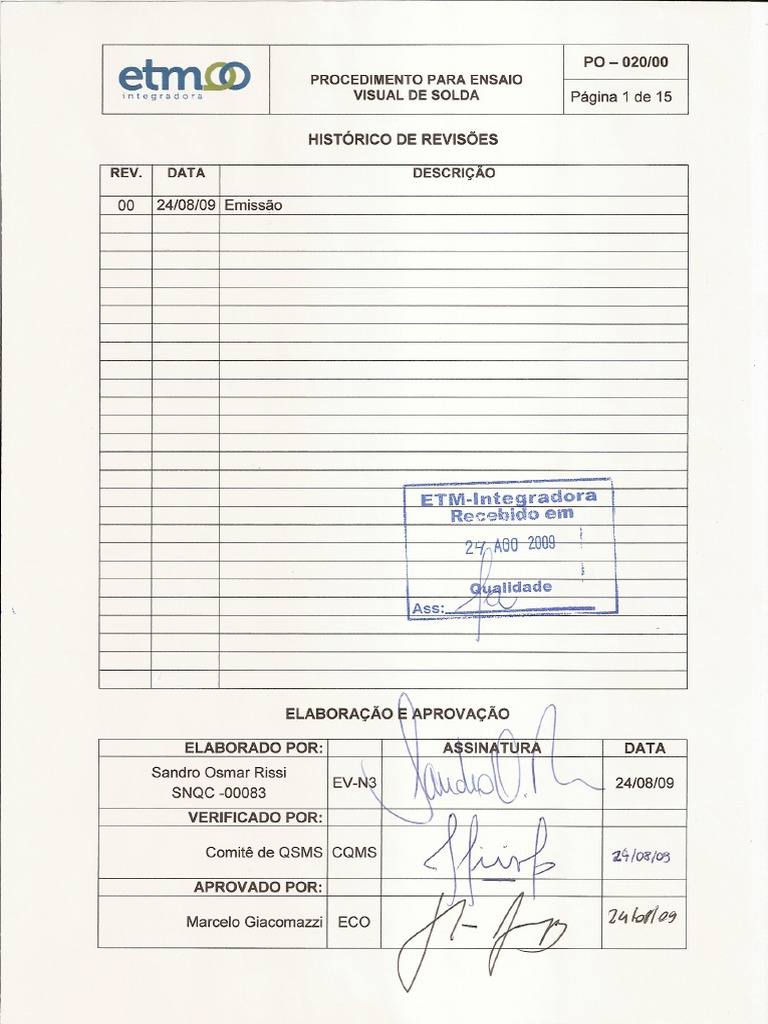 etm
integradora
PROCEDIMENTO PARA ENSAIO
VISUAL DE SOLDA
PO – 020/00
Página 1 de 15
HISTÓRICO DE REVISÕES
REV. DATA DESCRIÇÃO
00 24/08/09 Emissão
ETM-Integradora
Recebido em
24 AGO 2009
Qualidade
Ass:
ELABORAÇÃO E APROVAÇÃO
ELABORADO POR: ASSINATURA DATA
Sandro Osmar Rissi
SNQC -00083
EV-N3
Sandro O. R
24/08/09
VERIFICADO POR:
Comitê de QSMS CQMS 24/08/09
APROVADO POR:
Marcelo Giacomazzi ECO 24/08/09